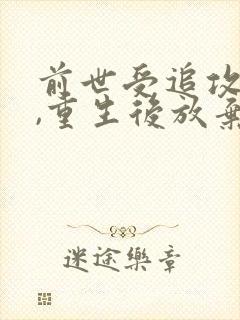 前世受追攻
,重生後放棄
迷途樂章